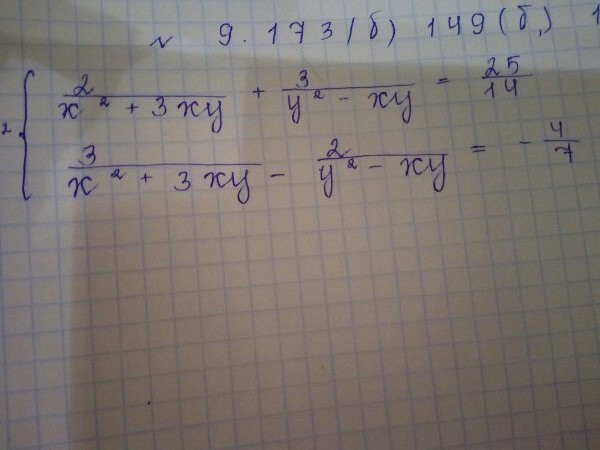 № 9.173(б) 149(б,) 1
2. { 2/(x² + 3xy) + 3/(y² - xy) = 25/14
3/(x² + 3xy) - 2/(y² - xy) = - 4/7